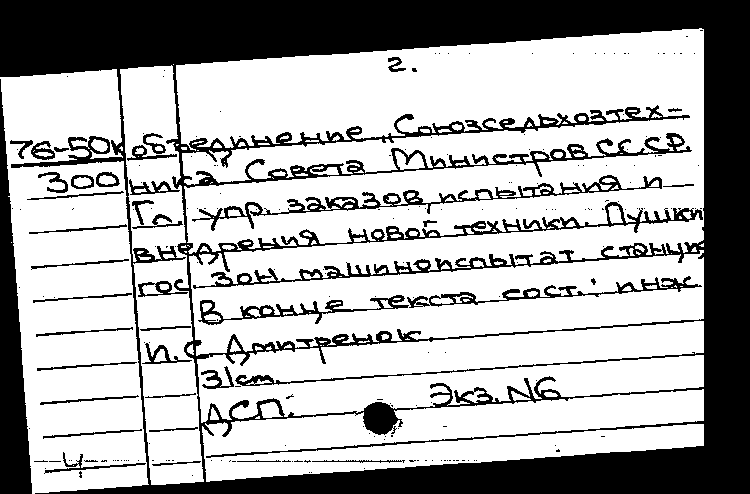 2.
76-50к объединение „Союзсельхозтех-
300 ника" Совета Министров СССР.
Гл. упр. заказов, испытания и
внедрения новой техники. Пушкин
гос. зон. машиноиспытат. станция
В конце текста сост.: инж.
И.С. Дмитренок.
31 ст.
ДСП. Экз. №6
4